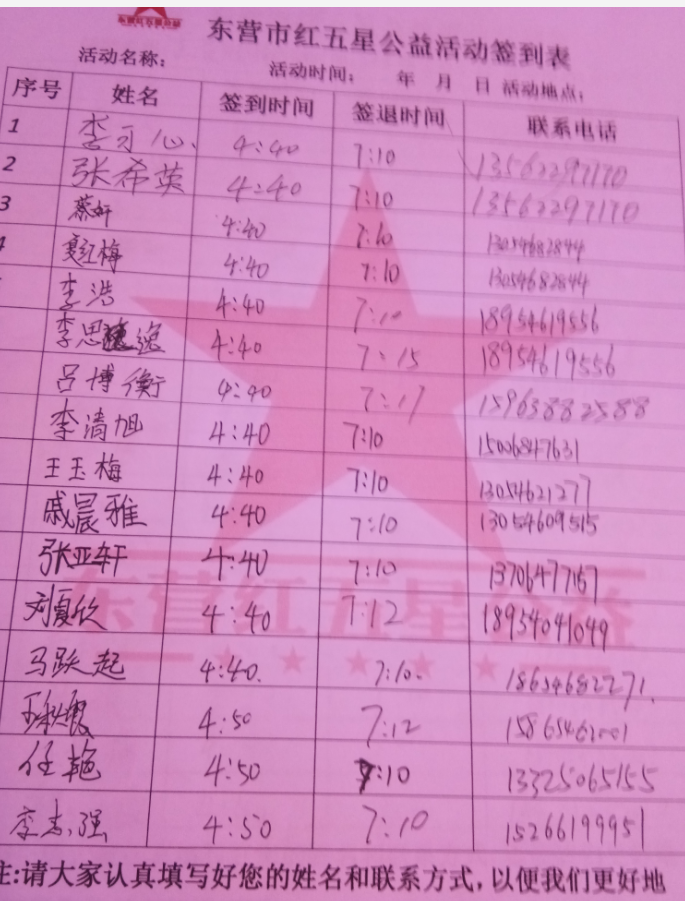 东营市红五星公益活动签到表
活动名称： 活动时间： 年 月 日 活动地点：
序号 姓名 签到时间 签退时间 联系电话
1 李可心 4:40 7:10 13562297170
2 张希英 4:40 7:10 13562297170
3 蔡妍 4:40 7:10 13054682844
4 夏红梅 4:40 7:10 13054682844
李浩 4:40 7:10 18954619556
李思逸 4:40 7:15 18954619556
吕博衡 4:40 7:17 15963882588
李清旭 4:40 7:10 15006847631
王玉梅 4:40 7:10 13054621277
戚晨雅 4:40 7:10 13054609515
张亚轩 4:40 7:10 13706477167
刘夏欣 4:40 7:12 18954041049
东营红五星公益
马跃起 4:40. 7:10. 18654682271.
4:50 7:12 15865462001
任艳 4:50 7:10 13325065155
李志强 4:50 7:10 15266199951
注:请大家认真填写好您的姓名和联系方式,以便我们更好地